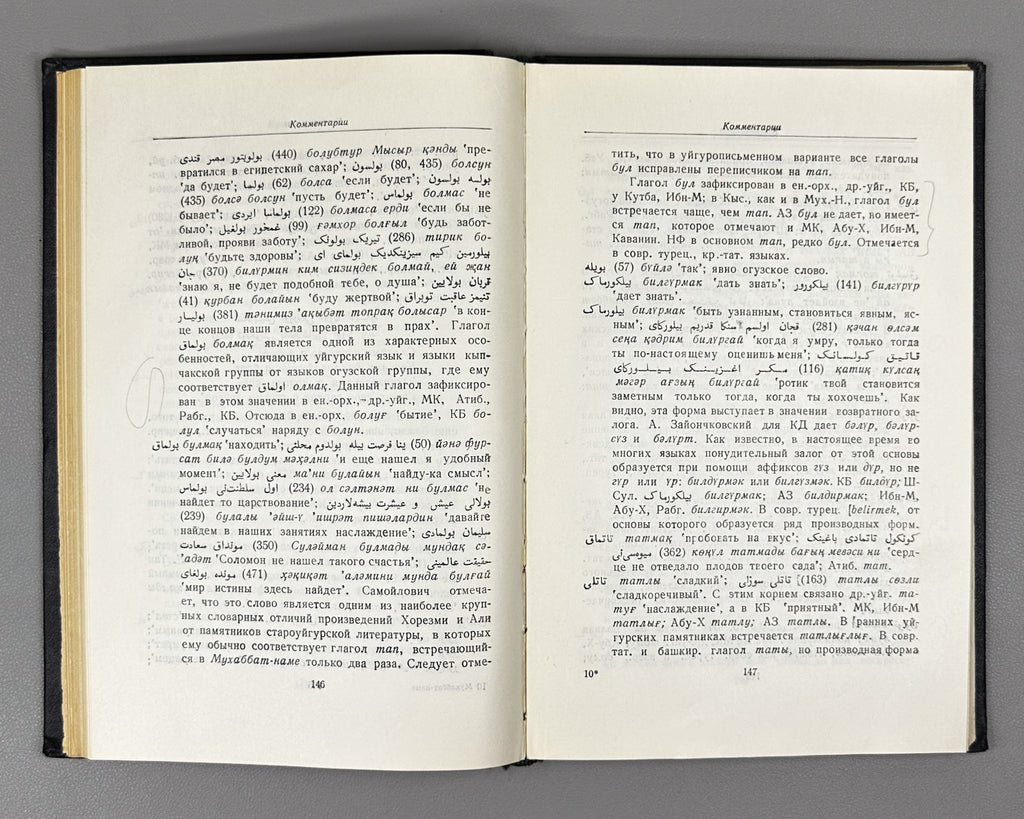 Комментарии
بولوبتور مصر قندی (440) болубтур Мысыр қәнды 'пре-
вратился в египетский сахар'; بولسون (80, 435) болсун
'да будет'; بولسا (62) болса 'если будет'; بولسه بولسون
(435) болсә болсун 'пусть будет'; بولماس болмас 'не
бывает'; بولماسا ایردی (122) болмаса ерди 'если бы не
было'; غمخور بولغیل (99) ғәмхор болғыл 'будь забот-
ливой, прояви заботу'; تیریک بولونک (286) тирик бо-
луң 'будьте здоровы'; بیلورمین کیم سیزینکدیک بولمای ای
جان (370) билүрмин ким сизиңдек болмай, ей җан
'знаю я, не будет подобной тебе, о душа'; قربان بولایین
(41) қурбан болайын 'буду жертвой'; تنیمز عاقبت توپراق
بولیسار (381) тәнимиз 'ақыбәт топрақ болысар 'в кон-
це концов наши тела превратятся в прах'. Глагол
بولماق болмақ является одной из характерных осо-
бенностей, отличающих уйгурский язык и языки кып-
чакской группы от языков огузской группы, где ему
соответствует اولماق олмақ. Данный глагол зафиксиро-
ван в этом значении в ен.-орх., др.-уйг., МК, Атиб.,
Рабг., КБ. Отсюда в ен.-орх. болуғ 'бытие', КБ бо-
лул 'случаться' наряду с болун.
بولماق булмақ 'находить'; ینا فرصت بیله بولدوم محلنی (50) йәнә фур-
сат билә булдум мәҳәлни 'и еще нашел я удобный
момент'; معنی بولایین ма'ни булайын 'найду-ка смысл';
اول سلطنت‌نی بولماس (234) ол сәлтәнәт ни булмас 'не
найдет то царствование'; بولالی عیشی و عیشرت بیشه‌لاردین
(239) булалы 'әйш-ү 'ишрәт пишәлардин 'давайте
найдем в наших занятиях наслаждение'; سلیمان بولمادی
مونداق سعادت (350) Суләйман булмады мундақ сә-
'адәт 'Соломон не нашел такого счастья'; حقیقت عالمینی
مونده بولغای (471) ҳәқиқәт 'аләмини мунда булғай
'мир истины здесь найдет'. Самойлович отмеча-
ет, что это слово является одним из наиболее круп-
ных словарных отличий произведений Хорезми и Али
от памятников староуйгурской литературы, в которых
ему обычно соответствует глагол тап, встречающий-
ся в Мухаббат-наме только два раза. Следует отме-
146
Комментарии
тить, что в уйгурописьменном варианте все глаголы
бул исправлены переписчиком на тап.
Глагол бул зафиксирован в ен.-орх., др.-уйг., КБ,
у Кутба, Ибн-М; в Кыс., как и в Мух.-Н., глагол бул
встречается чаще, чем тап. АЗ бул не дает, но имеет-
ся тап, которое отмечают и МК, Абу-Х, Ибн-М,
Каванин. НФ в основном тап, редко бул. Отмечается
в совр. турец., кр.-тат. языках.
بویله (57) бүйлә 'так'; явно огузское слово.
بیلکورماک билгүрмак 'дать знать'; بیلکورور (141) билгүрүр
'дает знать'.
بیلورماک билүрмак 'быть узнанным, становиться явным, яс-
ным'; قچان اولسم سنکا قدریم بیلورکای (281) қәчан өлсәм
сеңа қәдрим билүргай 'когда я умру, только тогда
ты по-настоящему оценишь меня'; قاتیق کولسانک
مکر اغزینک بیلورکای (116) қатиқ күлсаң
мәгәр ағзың билүргай 'ротик твой становится
заметным только тогда, когда ты хохочешь'. Как
видно, эта форма выступает в значении возвратного за-
лога. А. Зайончковский для КД дает бәлүр, бәлүр-
сүз и бәлүрт. Как известно, в настоящее время во
многих языках понудительный залог от этой основы
образуется при помощи аффиксов гүз или дүр, но не
гүр или үр: билдүрмәк или билгүзмәк. КБ билдүр; Ш-
Сул. بیلکورماک билгүрмак; АЗ билдирмак; Ибн-М,
Абу-Х, Рабг. билгирмәк. В совр. турец. [belirmek, от
основы которого образуется ряд производных форм.
تاتماق татмақ 'пробовать на вкус'; کونکول تاتمادی باغینک
میوه‌سی‌نی (362) көңүл татмады бағың мевәси ни 'серд-
це не отведало плодов твоего сада'; Атиб. тат.
تاتلی татлы 'сладкий'; تاتلی سوزلی (163) татлы сөзли
'сладкоречивый'. С этим корнем связано др.-уйг. та-
туғ 'наслаждение', а в КБ 'приятный'. МК, Ибн-М
татлығ; Абу-Х татлу; АЗ татлы. В ранних уй-
гурских памятниках встречается татлығлығ. В совр.
тат. и башкир. глагол таты, но производная форма
10*
147